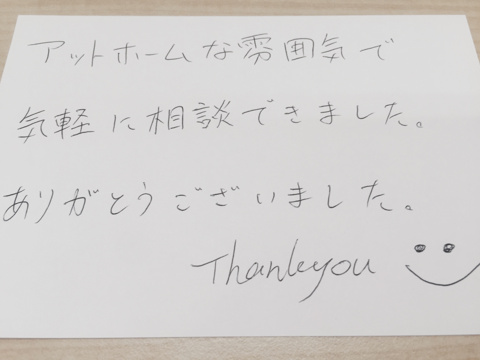 アットホームな雰囲気で
気軽に相談できました。
ありがとうございました。
Thankyou